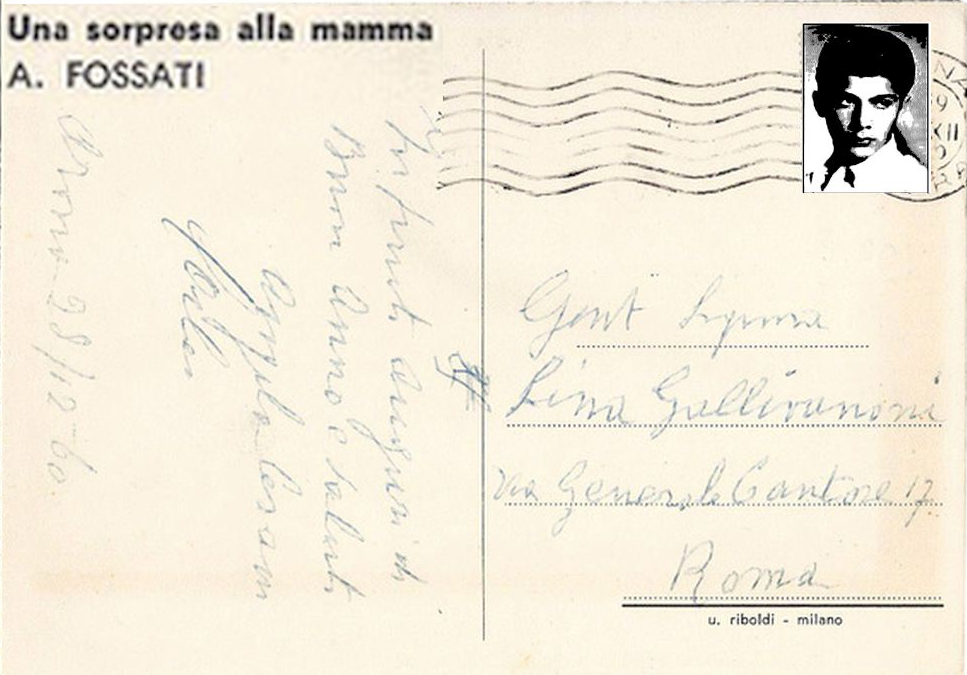 Una sorpresa alla mamma
A. FOSSATI
28/12-60
Infiniti Auguri di
Buon Anno e saluti
Gent Signora
Lina Gallivanoni
Via Generale Cantore 17
Roma
u. riboldi - milano